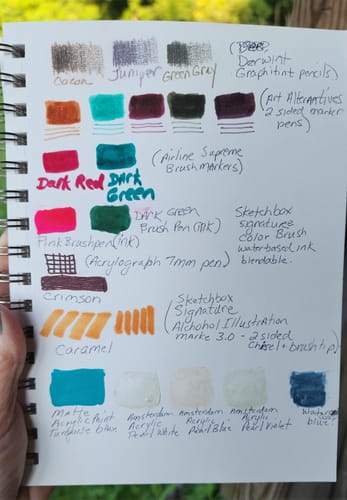 Cocoa Juniper Green Gray
Derwint
Graphitint pencils)
(Art Alternatives
2 sided marker
pens)
(Airline Supreme
Brush Markers)
Dark Red DARK
Green
DARK Green
Brush Pen (ink)
Pink Brush pen (ink)
Sketchbox
signature
color Brush
waterbased ink
blendable.
(Acrylograph 7mm pen)
Crimson
(Sketchbox
Signature
Alchohol Illustration
marke 3.0 - 2 sided
Chisel + brush tip)
Caramel
Matte
Acrylic Paint
Turquoise blue
Amsterdam
Acrylic
Pearl White
Amsterdam
Acrylic
Pearl Blue
Amsterdam
Acrylic
Pearl Violet
blue